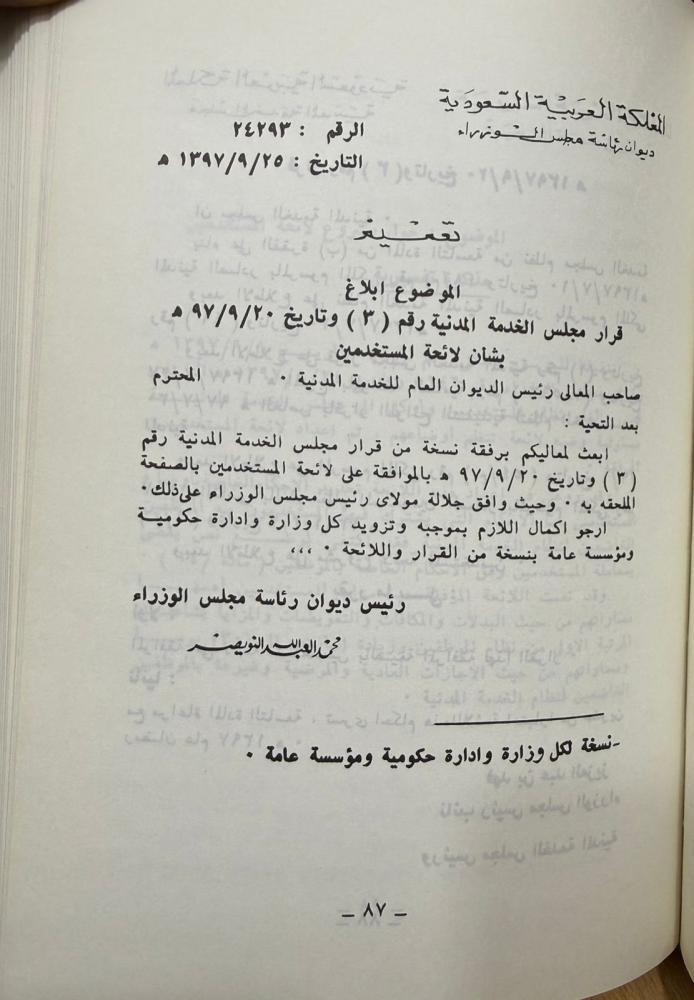 المملكة العربية السعودية
ديوان رئاسة مجلس الوزراء
الرقم : ٢٤٢٩٣
التاريخ : ١٣٩٧/٩/٢٥ هـ
تعميم
الموضوع ابلاغ
قرار مجلس الخدمة المدنية رقم ( ٣ ) وتاريخ ٩٧/٩/٢٠ هـ
بشان لائحة المستخدمين
صاحب المعالى رئيس الديوان العام للخدمة المدنية ٠ المحترم
بعد التحية :
ابعث لمعاليكم برفقة نسخة من قرار مجلس الخدمة المدنية رقم
( ٣ ) وتاريخ ٩٧/٩/٢٠ هـ بالموافقة على لائحة المستخدمين بالصفحة
الملحقه به ٠ وحيث وافق جلالة مولاى رئيس مجلس الوزراء على ذلك٠
ارجو اكمال اللازم بموجبه وتزويد كل وزارة وادارة حكوميـة
ومؤسسة عامة بنسخة من القرار واللائحة ٠ ،،،
رئيس ديوان رئاسة مجلس الوزراء
محمد العبدالله النويصر
ـ نسخة لكل وزارة وادارة حكومية ومؤسسة عامة ٠
ـ ٨٧ ـ